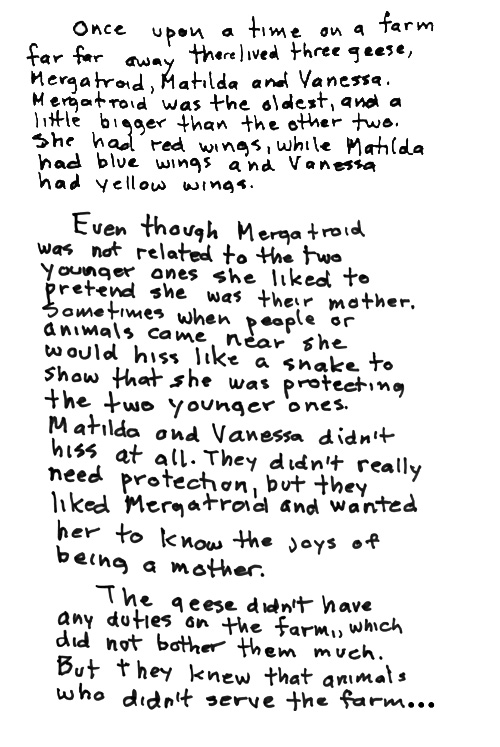 Once upon a time on a farm
far far away there lived three geese,
Mergatroid, Matilda and Vanessa.
Mergatroid was the oldest, and a
little bigger than the other two.
She had red wings, while Matilda
had blue wings and Vanessa
had yellow wings.
Even though Mergatroid
was not related to the two
younger ones she liked to
pretend she was their mother.
Sometimes when people or
animals came near she
would hiss like a snake to
show that she was protecting
the two younger ones.
Matilda and Vanessa didn't
hiss at all. They didn't really
need protection, but they
liked Mergatroid and wanted
her to know the joys of
being a mother.
The geese didn't have
any duties on the farm,, which
did not bother them much.
But they knew that animals
who didn't serve the farm...